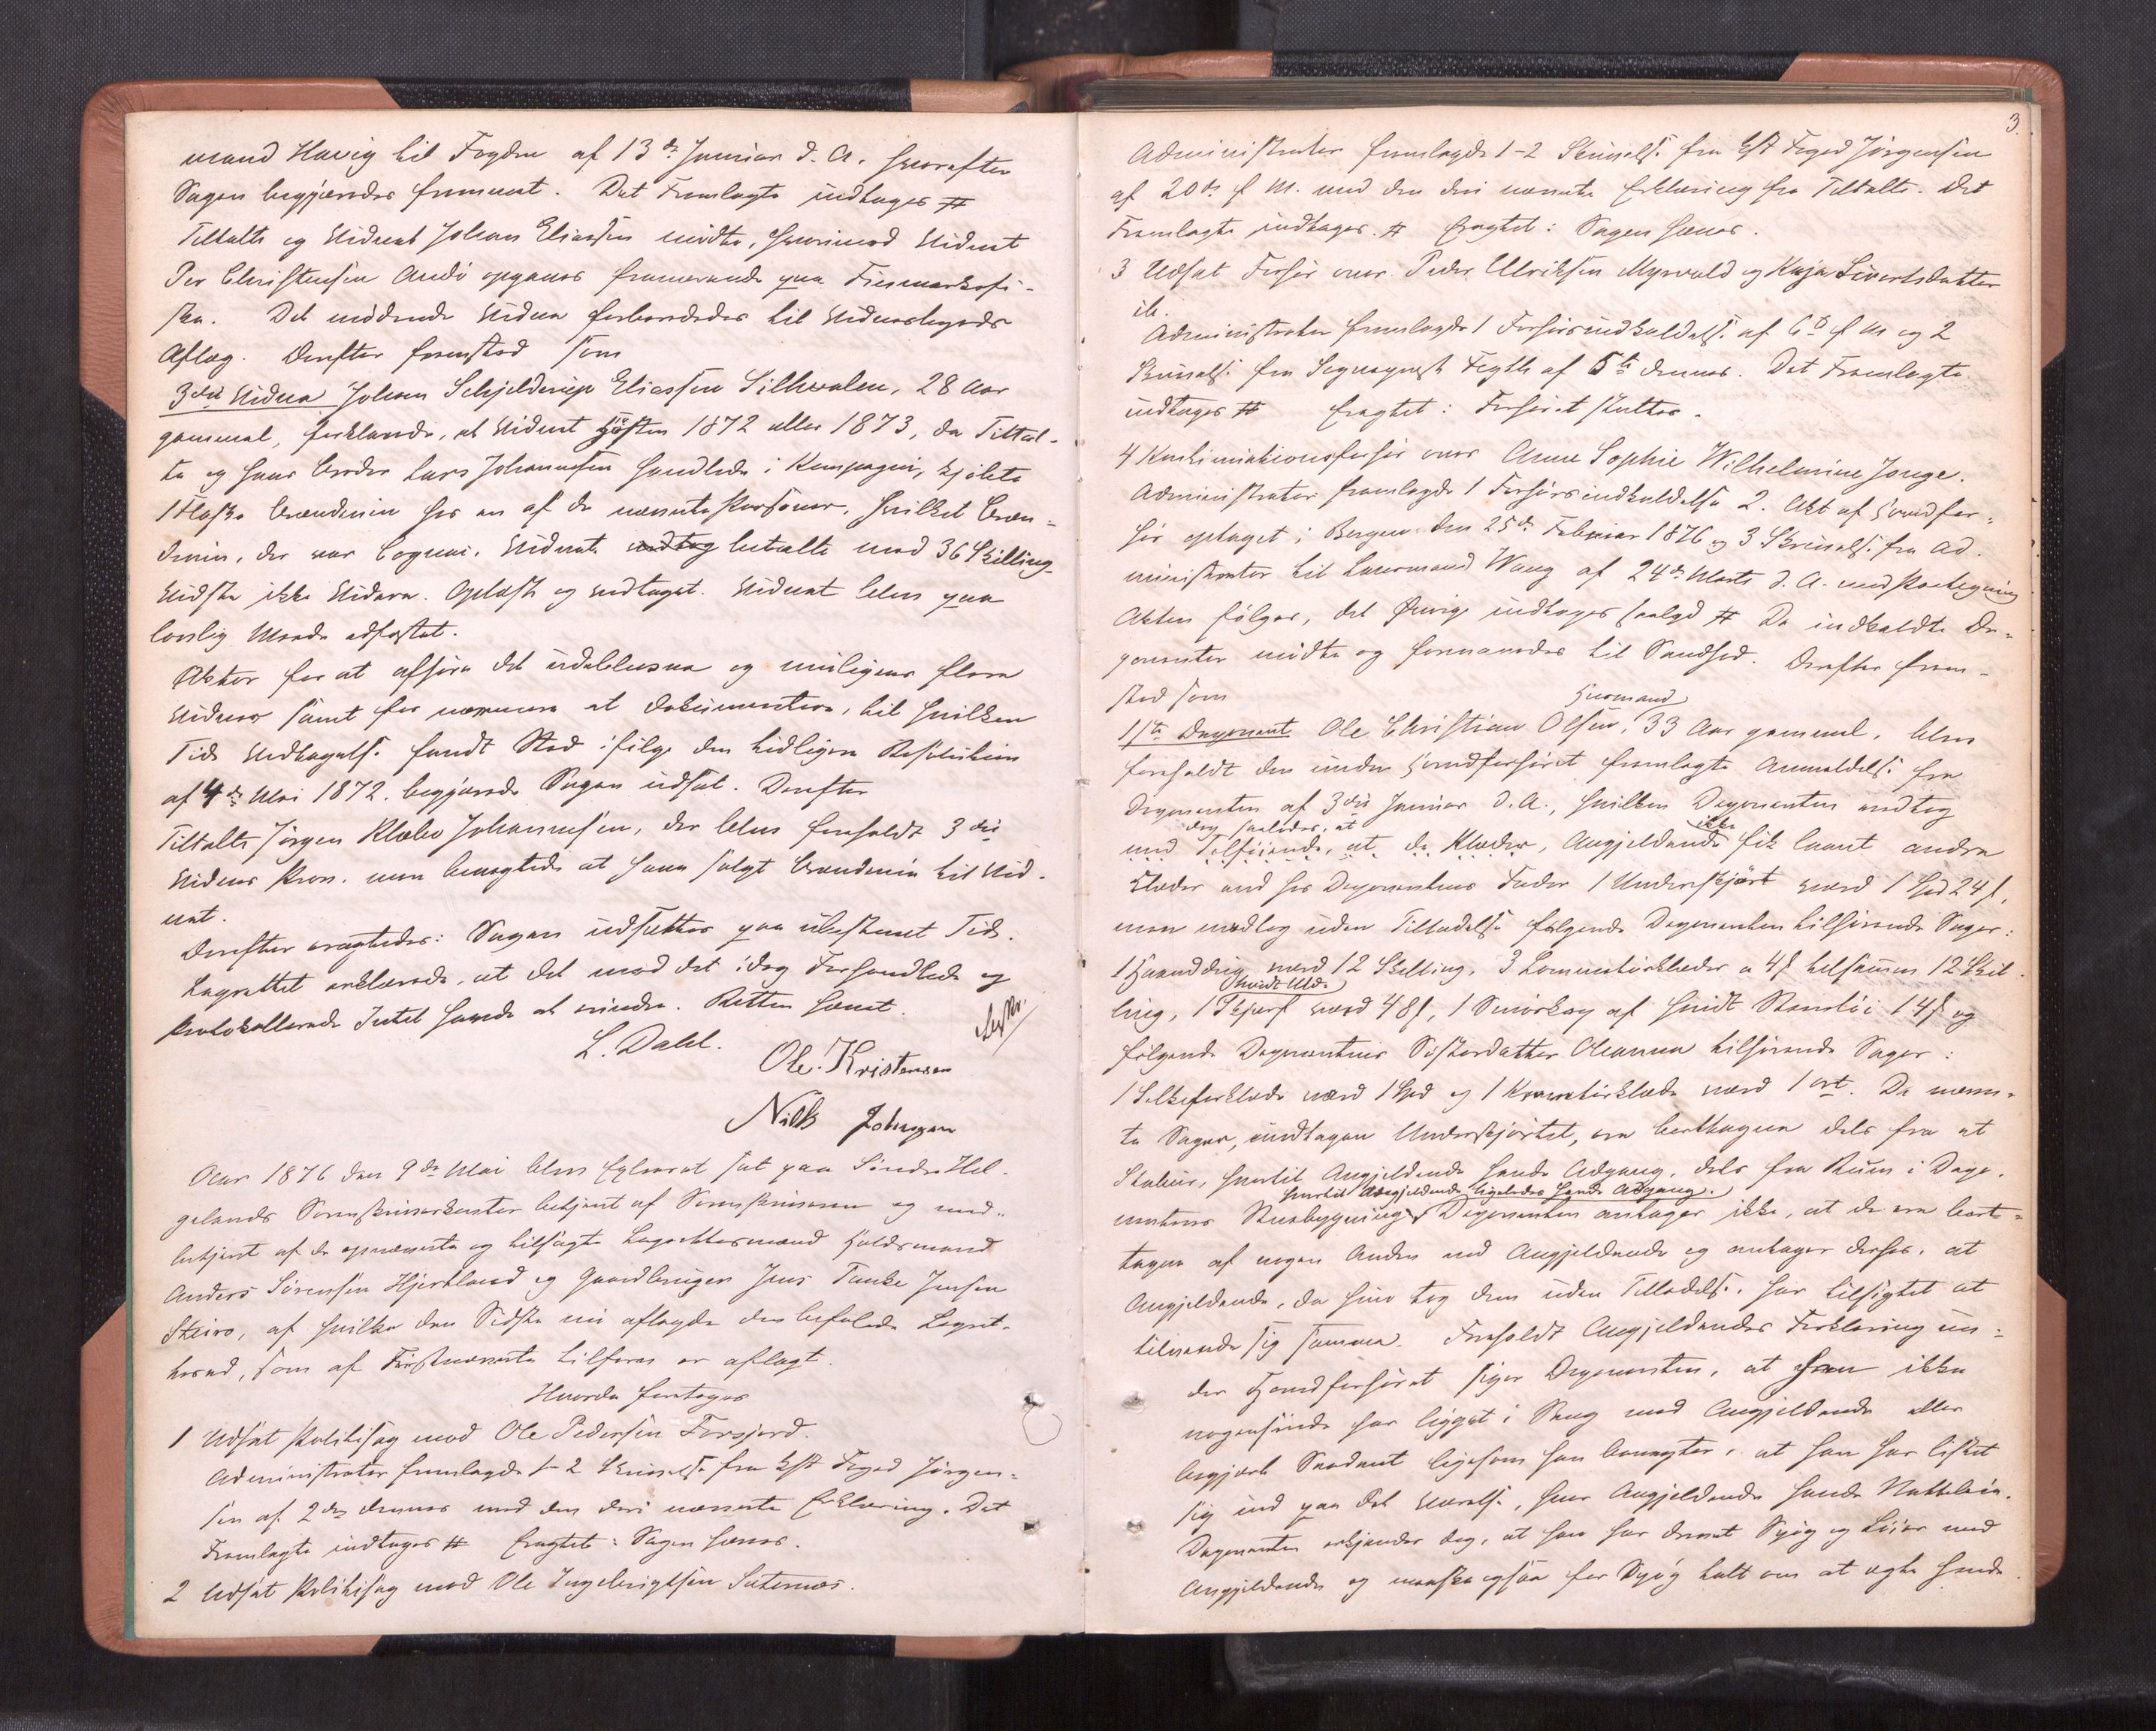 mand Havig til Fogden af 13de Januar d. A. hvorefter
Sagen begjæredes fremmet. Det Fremlagte indtages #
Tiltalte og Vidnet Johan Eliassen mødte, hvorimod Vidnet
Per Christensen Andö opgaves fraværende paa Finmarksfi-
ske. Det mødende Vidne forberededes til Vidnesbyrds
Aflæg. Derefter fremstod som
3die Vidne Johan Schjelderup Eliassen Silhvalen, 28 Aar
gammel, forklarede, at Vidnet Høsten 1872 eller 1873, da Tiltal-
te og hans Broder Lars Johannesen handlede i Kompagni, kjøbte
1 Flaske Brændeviin hos en af de nævnte Personer, hvilket Bræn-
deviin, der var Cognac, Vidnet betalte med 36 Skilling.
Vidste ikke Videre. Oplæst og vedtaget. Vidnet blev paa
lovlig Maade edfæstet.
Aktor for at afhøre det udeblevne og muligens flere
Vidner samt for nærmere at dokumentere, til hvilken
Tid Vedtagelse fandt Sted ifølge den tidligere Resolution
af 4de Mai 1872, begjærede Sagen udsat. Derefter
Tiltalte Jörgen Klæbo Johannesen, der blev foreholdt 3die
Vidnes Prov. men benegtede at have solgt Brændeviin til Vid-
net.
Derefter eragtedes: Sagen udsættes paa ubestemt Tid.
Lagrettet erklærede, at det mod det idag Forhandlede og
Protokollerede Intet havde at erindre. Retten hævet.
L. Dahl.
Ole Kristensen
Nills Johnsen
Aar 1876 den 9de Mai blev Extraret sat paa Söndre Hel-
gelands Sorenskriverkontor betjent af Sorenskriveren og med-
betjent af de opnævnte og tilsagte Lagrettesmænd Huldsmand
Anders Sörensen Hjertland og Gaardbruger Jens Tanke Jensen
Steiro, af hvilke den Sidste nu aflagde den befalede Lagret-
tesed, som af Förstnævnte tilforn er aflagt.
Hvorda foretoges
1 Udsat Politisag mod Ole Pedersen Forsjord.
Administrator fremlagde 1-2 Skrivelse fra kst Foged Jörgen-
sen af 2den dennes med den deri nævnte Erklæring. Det
Fremlagte indtages # Eragtet: Sagen hæves.
2 Udsat Politisag mod Ole Ingebrigtsen Sæternæs.
3.
Administrator fremlagde 1-2 Skrivelse fra kst Foged Jörgensen
af 20de f. M. med den deri nævnte Erklæring fra Tiltalte. Det
Fremlagte indtages. # Eragtet: Sagen hæves.
3 Udsat Forhør over Peder Ulriksen Myrvold og Kaja Sivertsdatter
ib.
Administrator fremlagde 1 Forhørsindkaldelse af 6te f M og 2
Skrivelse fra Sognepræst Fygth af 5te dennes. Det Fremlagte
indtages # Eragtet: Forhøret sluttes.
4 Kontinuationsforhør over Anne Sophie Wilhelmine Jonge.
Administrator fremlagde 1 Forhørsindkaldelse 2. Akt af Hovedfor-
hør optaget i Bergen den 25de Februar 1876 og 3 Skrivelse fra Ad-
ministrator til Lensmand Wang af 24de Marts d. A. med Paategning
Akten følger, det Øvrige indtages saalyd # De indkaldte De-
ponenter mødte og formanedes til Sandhed. Derefter frem-
stod som
Huusmand
1ste Deponent Ole Christian Olsen, 33 Aar gammel, blev
foreholdt den under Hovedforhøret fremlagte Anmeldelse fra
Deponenten af 3die Januar d. A., hvilken Deponenten vedtog
dog saaledes, at ikke
med Tilføiende, at de Klæder, Angjeldende fik laant andre
Klæder end hos Deponentens Fader 1 Underskjört værd 1 Spd 24 s,
men medtog uden Tilladelse følgende Deponenten tilhørende Sager:
1 Haanddug værd 12 Skilling, 3 Lommetörklæder a 4 s tilsammen 12 Skil-
hvidt Uld
ling, 1 Skjerf værd 48 s, 1 Smörkop af hvidt Stentöi 14 s og
følgende Deponentens Søsterdatter Oleanna tilhørende Sager:
1 Silkeforklæde værd 1 Spd og 1 Kravetörklæde værd 1 ort. De nævn-
te Sager, undtagen Underskjörtet, ere borttagne dels fra et
Stabur, hvortil Angjeldende havde Adgang, dels fra Rum i Depo-
hvortil Angjeldende ligeledes havde Adgang.
nentens Stuebygning. Deponenten antager ikke, at de ere bort-
tagne af nogen Anden end Angjeldende og antager derhos, at
Angjeldende, da hun tog dem uden Tilladelse, har tilsigtet at
tilvende sig samme. Foreholdt Angjeldendes Forklaring un-
der Hovedforhøret siger Deponenten, at han ikke
nogensinde har ligget i Seng med Angjeldende eller
begjært Saadant ligesom han benegter, at han har listet
sig ind paa det Værelse, hvor Angjeldende havde Natteleie.
Deponenten erkjender dog, at han har drevet Spög og Löier med
Angjeldende og maaske ogsaa for Spög talt om at ægte hende.